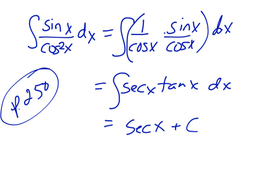 ∫ sinx/cos²x dx = ∫(1/cosx · sinx/cosx) dx
= ∫secx tanx dx
p.250
= secx + C